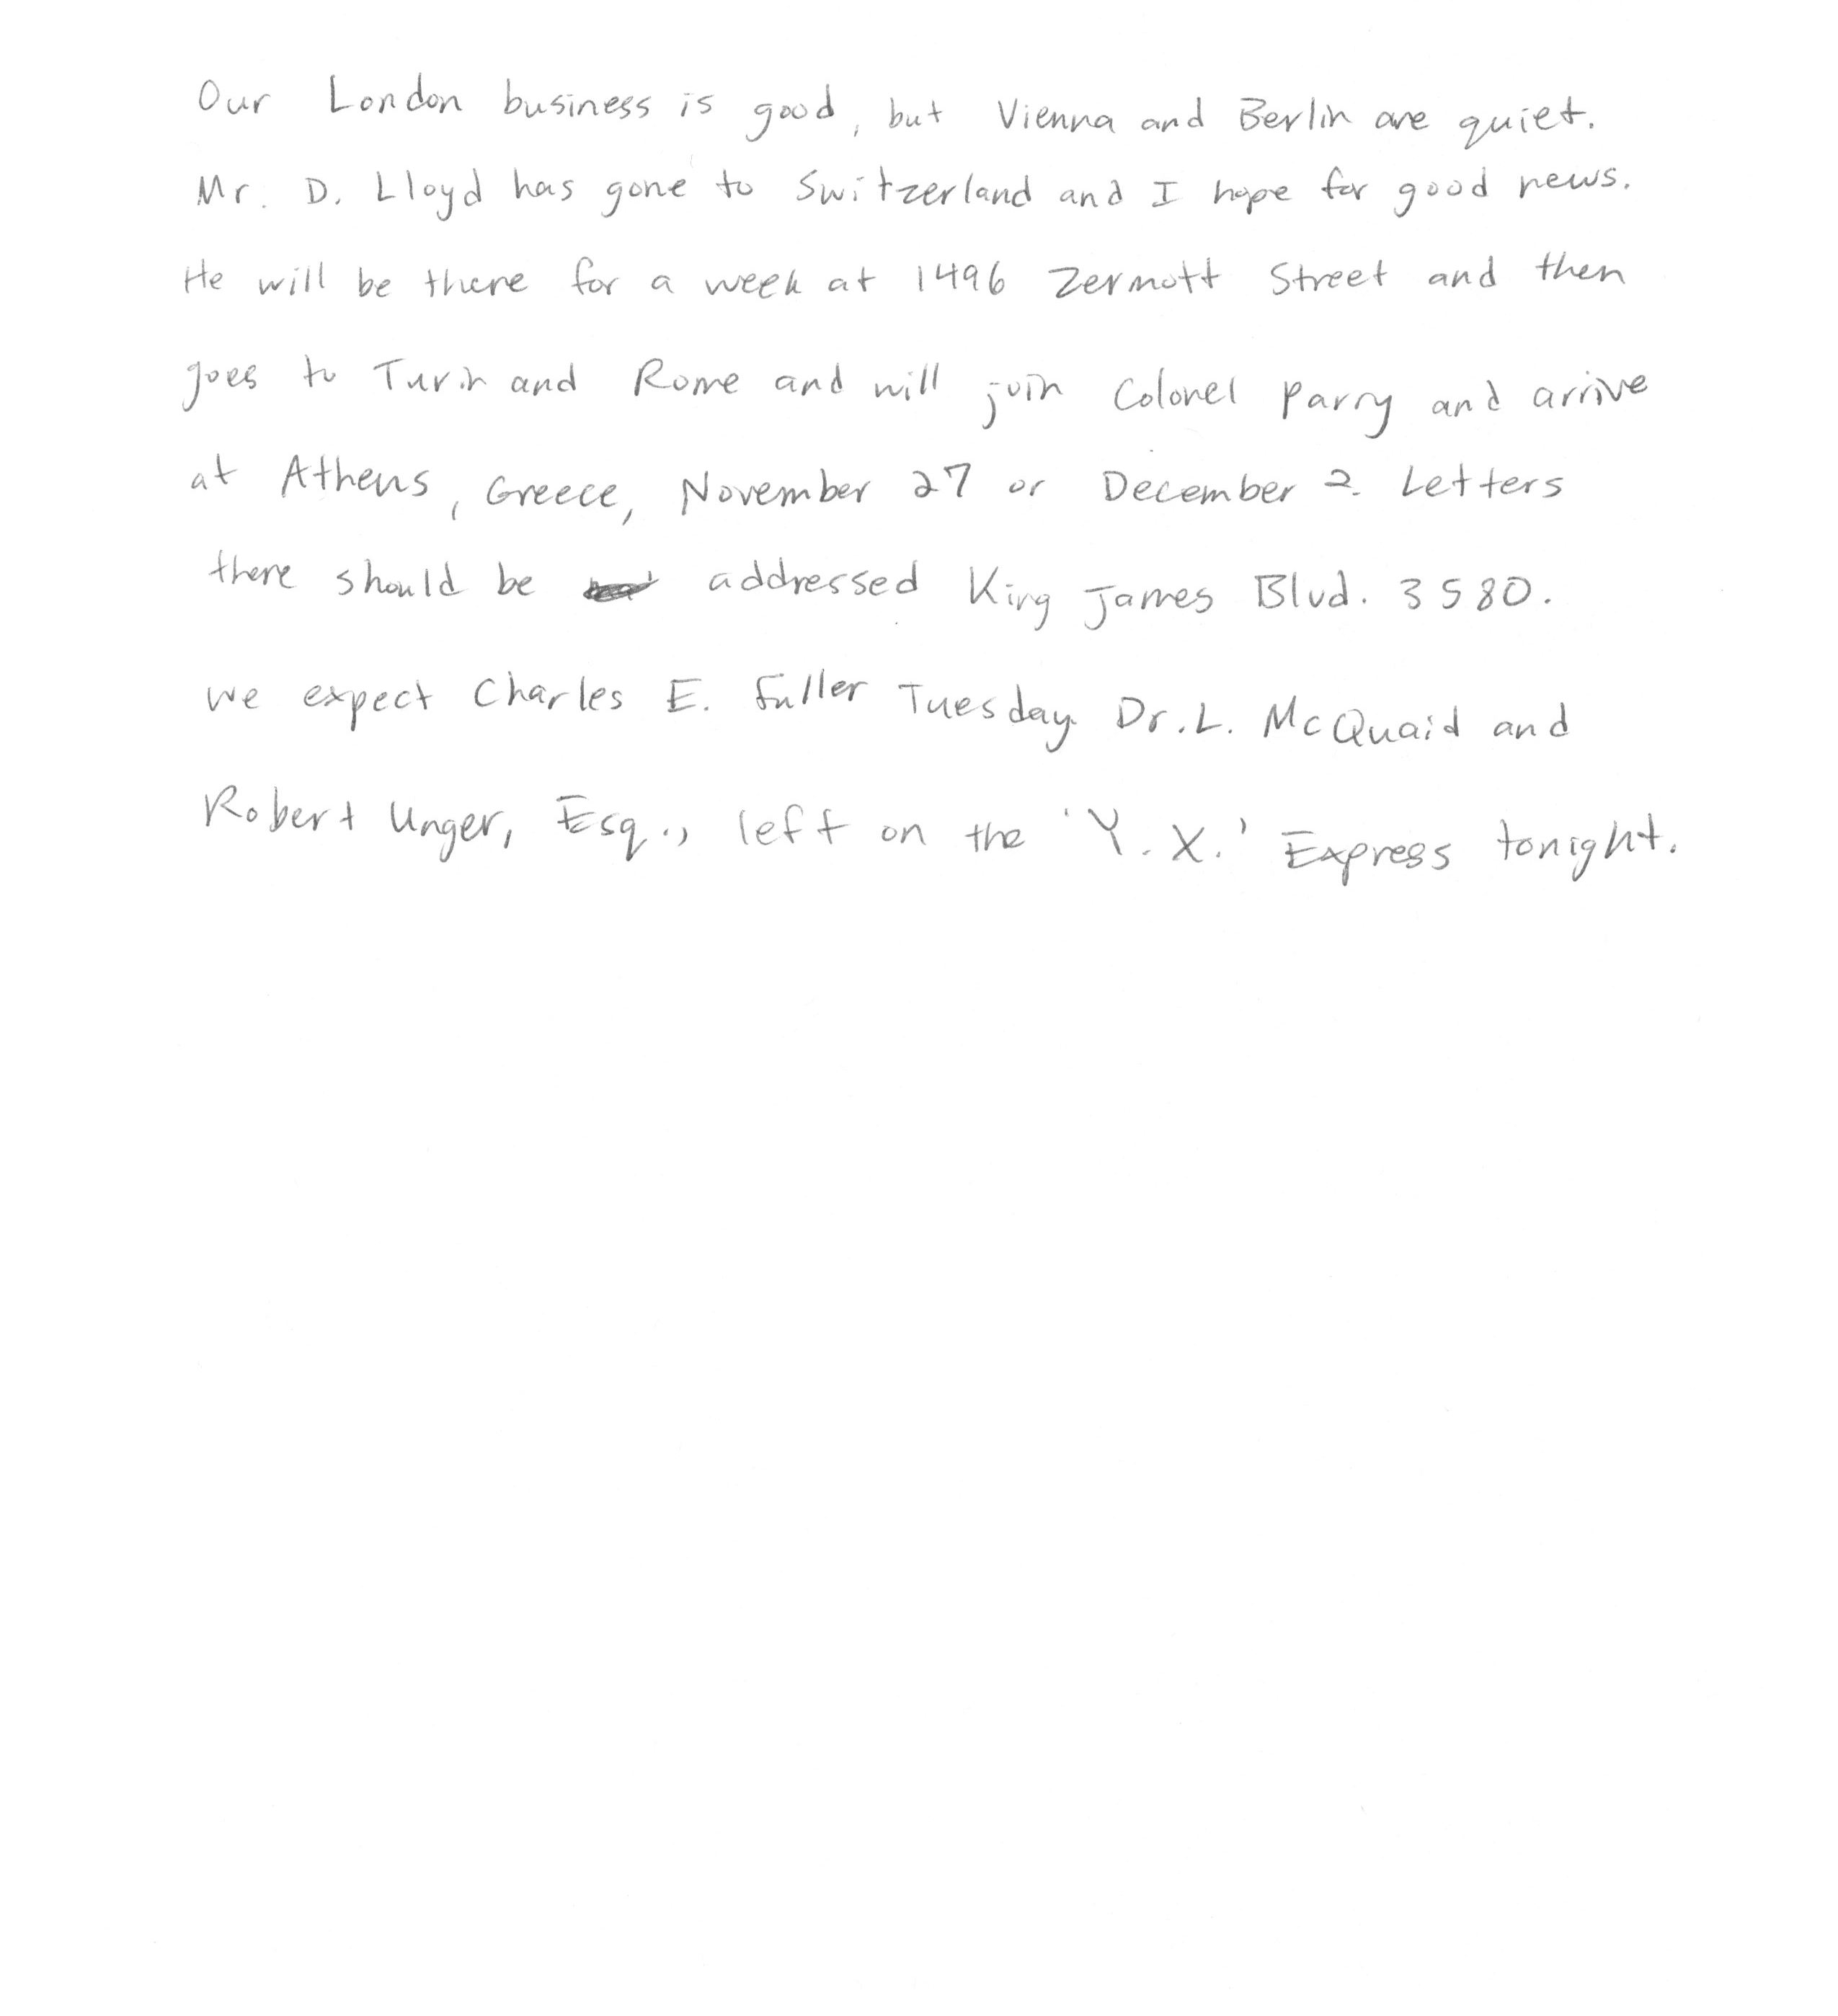 Our London business is good, but Vienna and Berlin are quiet.
Mr. D. Lloyd has gone to Switzerland and I hope for good news.
He will be there for a week at 1496 Zermott Street and then
goes to Turin and Rome and will join Colonel Parry and arrive
at Athens, Greece, November 27 or December 2. Letters
there should be addressed King James Blvd. 3580.
We expect Charles E. Fuller Tuesday. Dr. L. McQuaid and
Robert Unger, Esq., left on the 'Y.X.' Express tonight.